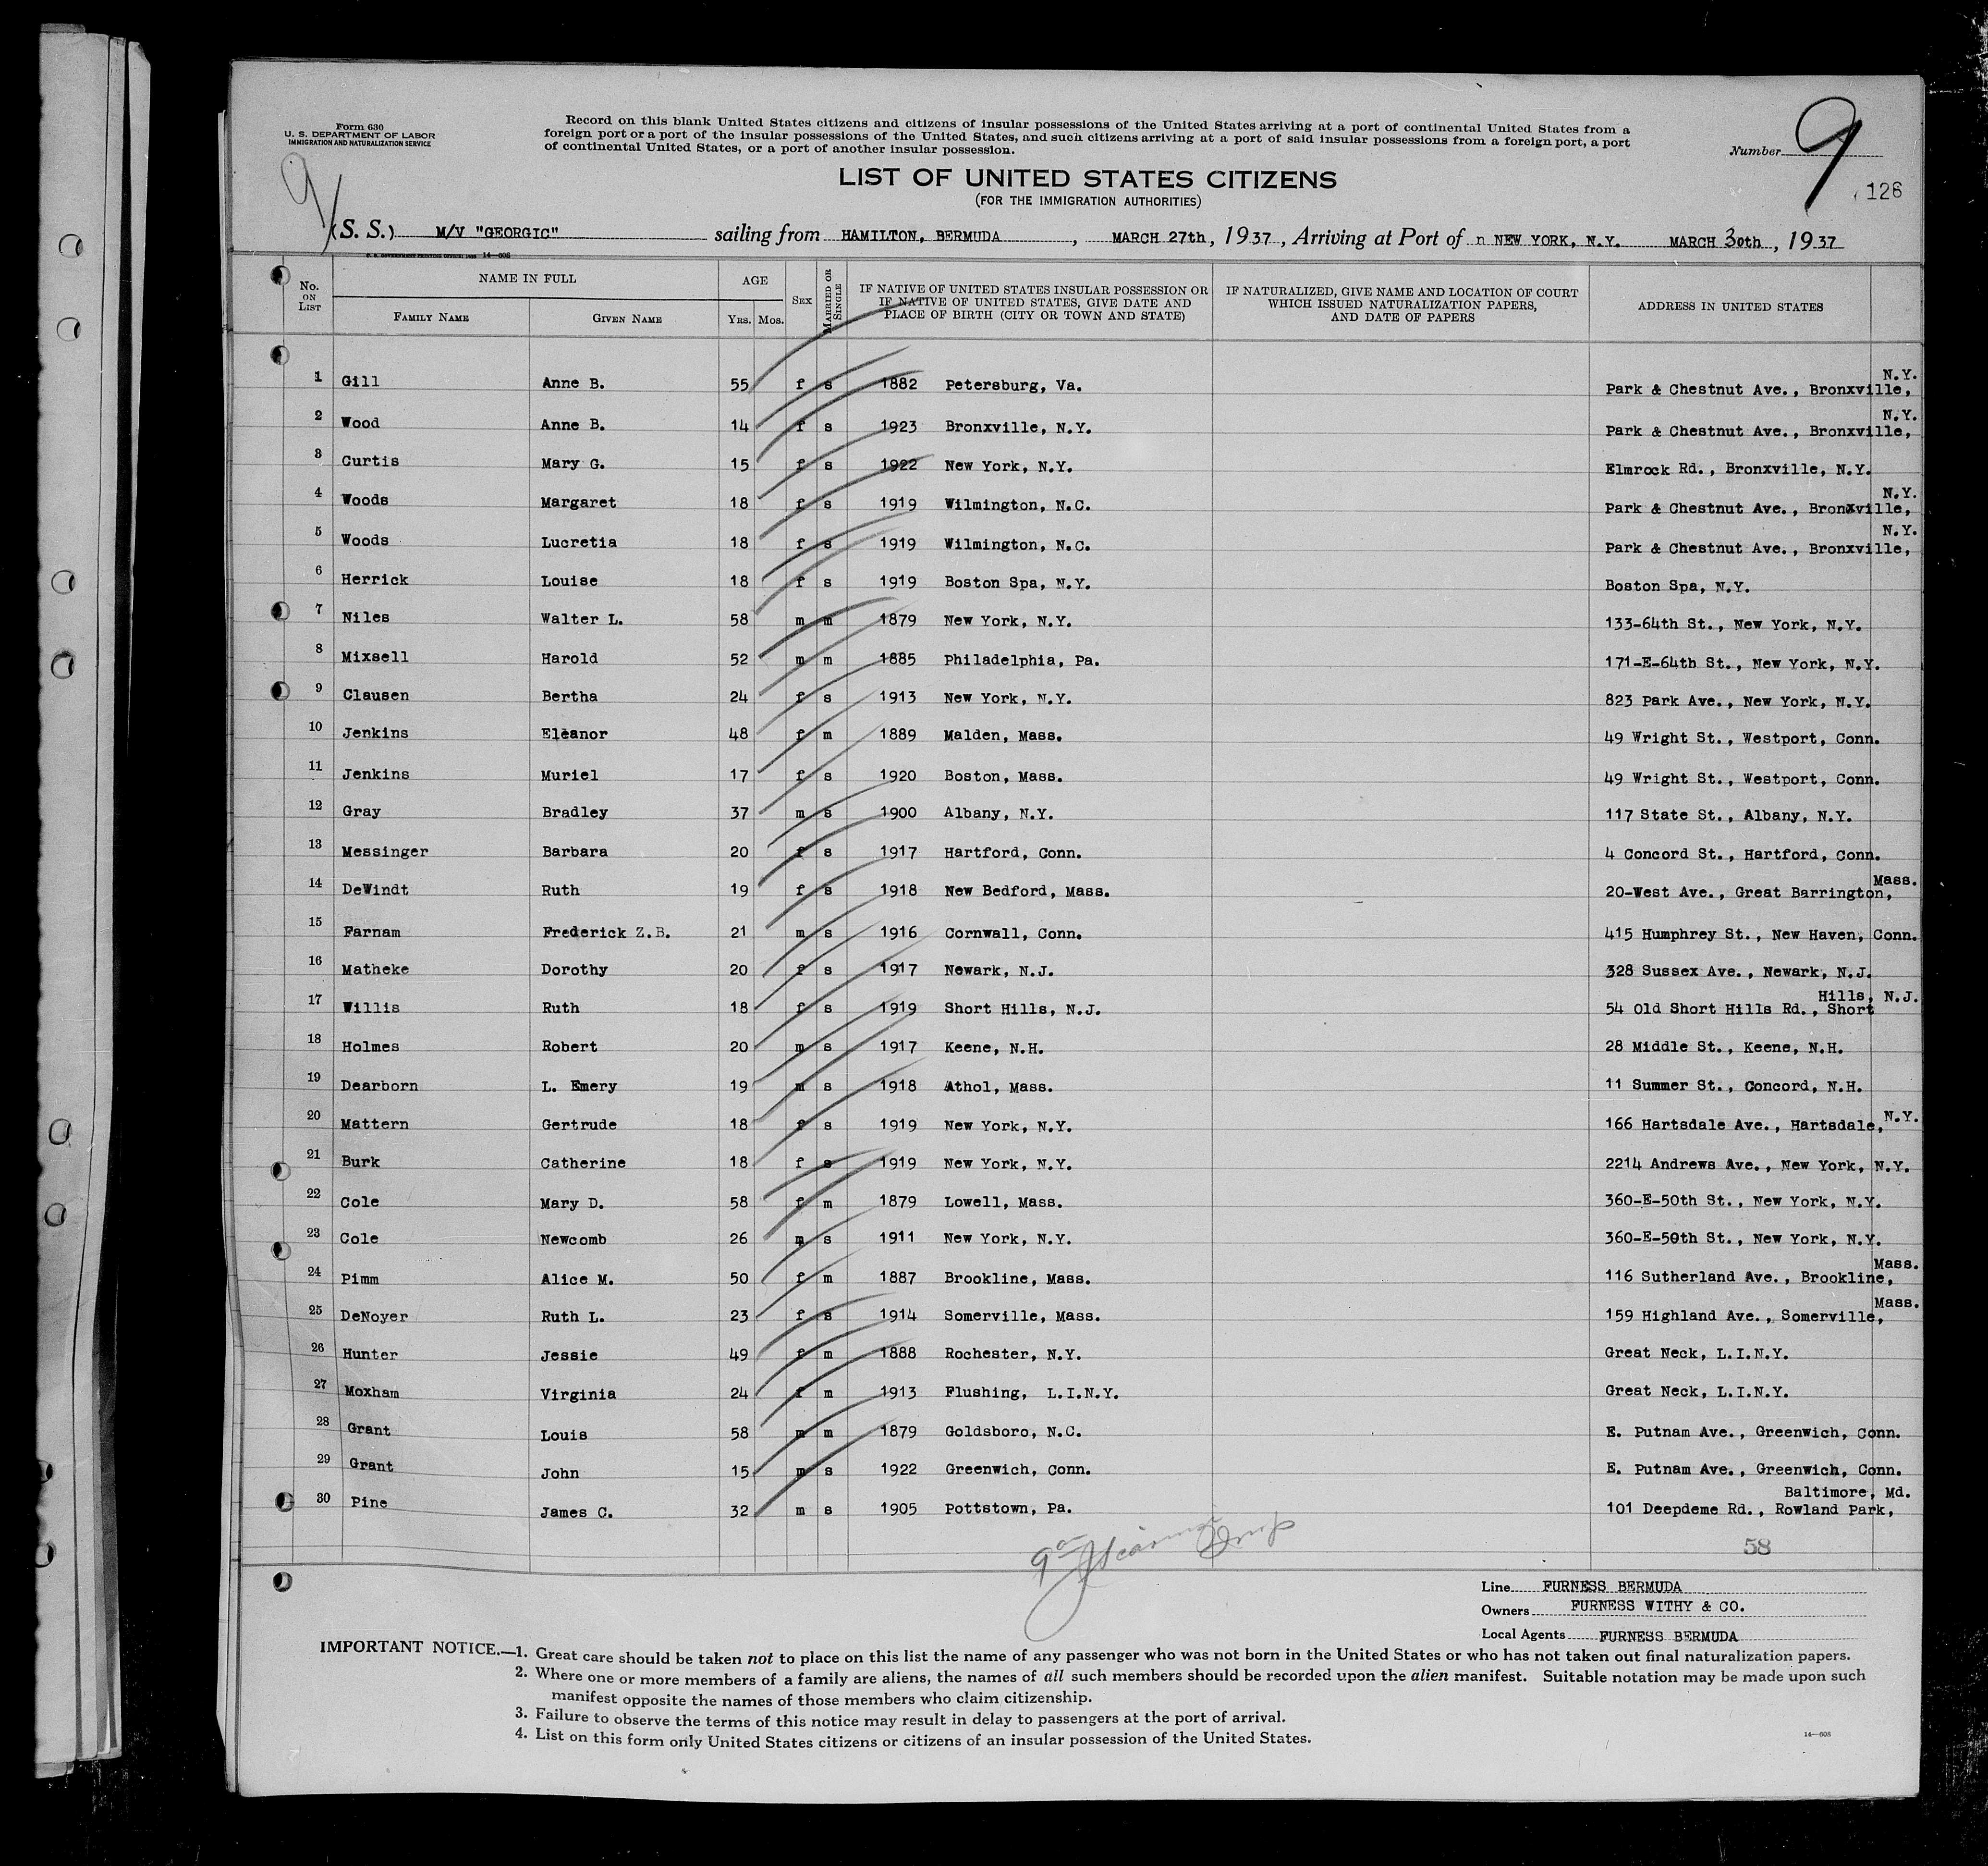 Form 630
U. S. DEPARTMENT OF LABOR
IMMIGRATION AND NATURALIZATION SERVICE
Record on this blank United States citizens and citizens of insular possessions of the United States arriving at a port of continental United States from a
foreign port or a port of the insular possessions of the United States, and such citizens arriving at a port of said insular possessions from a foreign port, a port
of continental United States, or a port of another insular possession.
Number 9
126
9
LIST OF UNITED STATES CITIZENS
(FOR THE IMMIGRATION AUTHORITIES)
(S. S.) M/V "GEORGIC" sailing from HAMILTON, BERMUDA, MARCH 27th, 1937, Arriving at Port of n NEW YORK, N.Y. MARCH 30th, 1937
U. S. GOVERNMENT PRINTING OFFICE: 14—608
No. ON LIST NAME IN FULL FAMILY NAME GIVEN NAME AGE YRS. MOS. SEX MARRIED OR SINGLE IF NATIVE OF UNITED STATES INSULAR POSSESSION OR IF NATIVE OF UNITED STATES, GIVE DATE AND PLACE OF BIRTH (CITY OR TOWN AND STATE) IF NATURALIZED, GIVE NAME AND LOCATION OF COURT WHICH ISSUED NATURALIZATION PAPERS, AND DATE OF PAPERS ADDRESS IN UNITED STATES
1 Gill Anne B. 55 f s 1882 Petersburg, Va. Park & Chestnut Ave., Bronxville, N.Y.
2 Wood Anne B. 14 f s 1923 Bronxville, N.Y. Park & Chestnut Ave., Bronxville, N.Y.
3 Curtis Mary G. 15 f s 1922 New York, N.Y. Elmrock Rd., Bronxville, N.Y.
4 Woods Margaret 18 f s 1919 Wilmington, N.C. Park & Chestnut Ave., Bronxville, N.Y.
5 Woods Lucretia 18 f s 1919 Wilmington, N.C. Park & Chestnut Ave., Bronxville, N.Y.
6 Herrick Louise 18 f s 1919 Boston Spa, N.Y. Boston Spa, N.Y.
7 Niles Walter L. 58 m m 1879 New York, N.Y. 133-64th St., New York, N.Y.
8 Mixsell Harold 52 m m 1885 Philadelphia, Pa. 171-E-64th St., New York, N.Y.
9 Clausen Bertha 24 f s 1913 New York, N.Y. 823 Park Ave., New York, N.Y.
10 Jenkins Eleanor 48 f m 1889 Malden, Mass. 49 Wright St., Westport, Conn.
11 Jenkins Muriel 17 f s 1920 Boston, Mass. 49 Wright St., Westport, Conn.
12 Gray Bradley 37 m s 1900 Albany, N.Y. 117 State St., Albany, N.Y.
13 Messinger Barbara 20 f s 1917 Hartford, Conn. 4 Concord St., Hartford, Conn.
14 DeWindt Ruth 19 f s 1918 New Bedford, Mass. 20-West Ave., Great Barrington, Mass.
15 Farnam Frederick Z.B. 21 m s 1916 Cornwall, Conn. 415 Humphrey St., New Haven, Conn.
16 Matheke Dorothy 20 f s 1917 Newark, N.J. 328 Sussex Ave., Newark, N.J.
17 Willis Ruth 18 f s 1919 Short Hills, N.J. 54 Old Short Hills Rd., Short Hills, N.J.
18 Holmes Robert 20 m s 1917 Keene, N.H. 28 Middle St., Keene, N.H.
19 Dearborn L. Emery 19 m s 1918 Athol, Mass. 11 Summer St., Concord, N.H.
20 Mattern Gertrude 18 f s 1919 New York, N.Y. 166 Hartsdale Ave., Hartsdale, N.Y.
21 Burk Catherine 18 f s 1919 New York, N.Y. 2214 Andrews Ave., New York, N.Y.
22 Cole Mary D. 58 f m 1879 Lowell, Mass. 360-E-50th St., New York, N.Y.
23 Cole Newcomb 26 m s 1911 New York, N.Y. 360-E-50th St., New York, N.Y.
24 Pimm Alice M. 50 f m 1887 Brookline, Mass. 116 Sutherland Ave., Brookline, Mass.
25 DeNoyer Ruth L. 23 f s 1914 Somerville, Mass. 159 Highland Ave., Somerville, Mass.
26 Hunter Jessie 49 f m 1888 Rochester, N.Y. Great Neck, L.I.N.Y.
27 Moxham Virginia 24 f m 1913 Flushing, L.I.N.Y. Great Neck, L.I.N.Y.
28 Grant Louis 58 m m 1879 Goldsboro, N.C. E. Putnam Ave., Greenwich, Conn.
29 Grant John 15 m s 1922 Greenwich, Conn. E. Putnam Ave., Greenwich, Conn.
30 Pine James C. 32 m s 1905 Pottstown, Pa. 101 Deepdeme Rd., Rowland Park, Baltimore, Md.
58
Line FURNESS BERMUDA
Owners FURNESS WITHY & CO.
Local Agents FURNESS BERMUDA
IMPORTANT NOTICE.—1. Great care should be taken not to place on this list the name of any passenger who was not born in the United States or who has not taken out final naturalization papers.
2. Where one or more members of a family are aliens, the names of all such members should be recorded upon the alien manifest. Suitable notation may be made upon such
manifest opposite the names of those members who claim citizenship.
3. Failure to observe the terms of this notice may result in delay to passengers at the port of arrival.
4. List on this form only United States citizens or citizens of an insular possession of the United States.
14—608